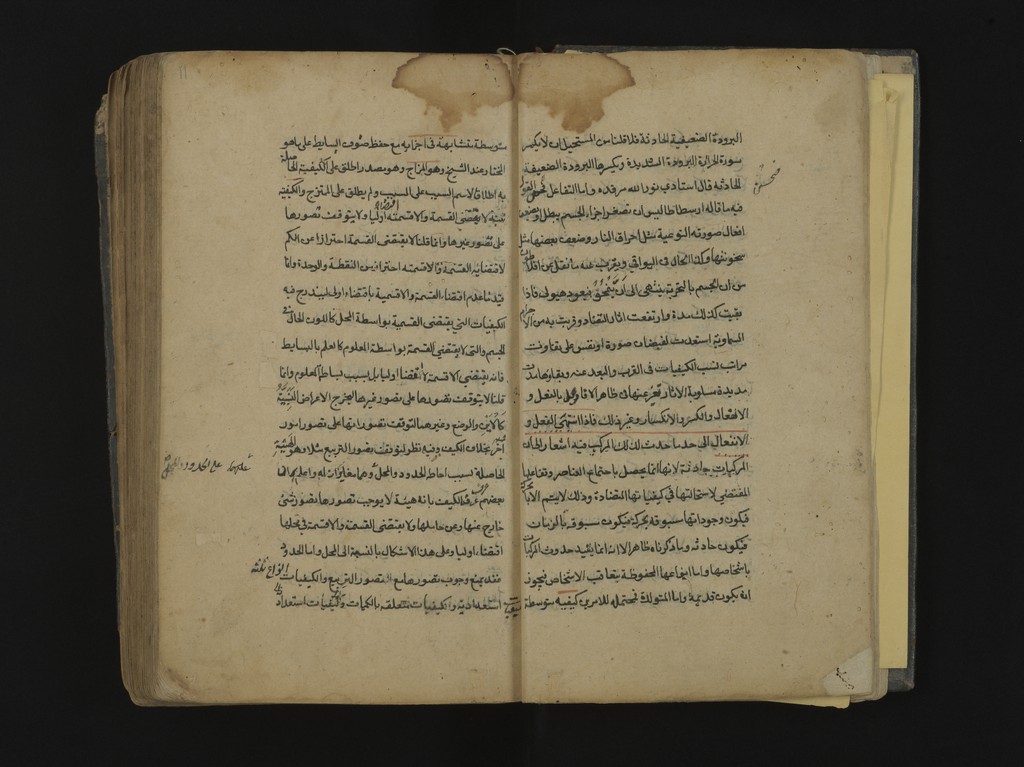 البرودة الضعيفة الحادثة فلا قلنا من المستحيل ان لا يكسر
سورة الحرارة البرودة الشديدة ويكسرها البرودة الضعيفة
الحادثة قال استاذي نور الله مرقده واما التفاعل
فيه ما قاله ارسطاطاليس ان تصغر اجزاء الجسم يبطل او يضعف
افعال صورته النوعية مثل احراق النار وضعف بعضها مثل
سخونتها وكذا الحال في البواقي ويقرب منه ما نقل عن افلاطون
من ان الجسم بالتجزية ينتهي الى ان ينمحق فيعود هيولى فاذا
بقيت كذلك مدة وارتفعت اثار التضاد وقربت به من الاجرام
السماوية استعدت لفيضان صورة او نفس على تفاوت
مراتب نسب الكيفيات في القرب والبعد عنه وبقاوها مدة
مديدة مسلوبة الاثار عنها ظاهر الا قول بالفعل و
الانفعال والكسر والانكسار وغير ذلك فاذا انتهى الفعل و
الانفعال الى حد ما حدث لذلك المركب فيه اشعار بان
المركبات حادثة لانها انما يحصل باجتماع العناصر وتفاعلها
المقتضي لاستحالتها في كيفياتها المتضادة وذلك لا يتم الا بالحركة
فيكون وجوداتها مسبوقة بحركة فيكون مسبوقة بالزمان
فيكون حادثه وما ذكرناه ظاهر الا انه انما يفيد حدوث المركبات
باشخاصها واما انواعها المحفوظة بتعاقب الاشخاص فيجوز
انه يكون قديمة واما المتولدة فمحتمله للامرين كيفيه متوسطة
متوسطة متشابهة في اجزايه مع حفظ صور البسايط على ما هو
المختار عند الشيخ وهو المزاج وهو مصدر اطلق على الكيفية الحاصلة
به اطلاقا لاسم السبب على المسبب ولم يطلق على الممتزج والكيفية
هيئة لا يقتضي القسمة والاقسمته اقتضاء اوليا ولا يتوقف تصورها
على تصور غيرها وانما قلنا لا يقتضي القسمة احترازا عن الكم
لاقتضايه القسمة والاقسمته احتراز عن النقطة والوحدة وانما
قيدنا عدم اقتضاء القسمة والاقسمية باقتضاء اولى ليندرج فيه
الكيفيات التي يقتضي القسمية بواسطة المحل كاللون الحال في
الجسم والتي لا يقتضي القسمة بواسطة المعلوم كالعلم بالبسايط
فانه يقتضي الاقسمة لا اقتضاء اوليا بل بسبب بساطة المعلوم وانما
قلنا لا يتوقف تصورها على تصور غيرها ليخرج الاعراض النسبية
كالاين والوضع وغيرهما لتوقف تصوراتها على تصور امور
اخر بخلاف الكيف وفيه نظر لتوقف تصور التربيع مثلا وهو الهيئة
الحاصلة بسبب احاطة الحدود والمحل وهما مغايران له واعلم ان
بعضهم عرف الكيف بانه هيئة لا يوجب تصورها تصور شئ
خارج عنها وعن حاملها ولا يقتضي القسمة والاقسمة في محلها
اقتضاء اوليا وعلى هذا الاشكال بالنسبة الى المحل واما الحدود
فقد يمنع وجوب تصورها مع تصور التربيع والكيفيات انواع ثلثة
استعدادية وكيفيات متعلقه بالكميات وكيفيات استعداد